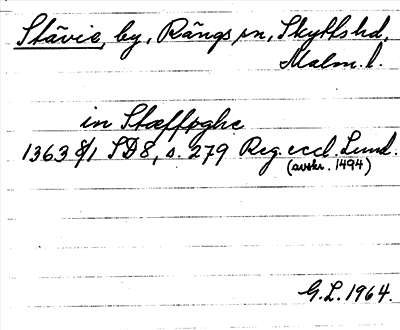 Stävie, by, Rängs sn, Skytts hd,
Malm. l.
in Stæfføghe
1363 8/1 SD8, s. 279 Reg. eccl. Lund.
(avskr. 1494)
G.L. 1964.